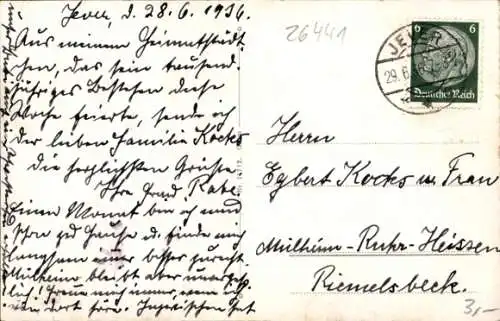 Jever, d. 28.6.1936.
Aus meinem Heimatstädt
chen, das sein tausend
jähriges Bestehen diese
Woche feierte, sende ich
der lieben Familie Kocks
die herzlichsten Grüße
Ihre Grad. Rabe.
Einen Monat bin ich nun
schon zu Hause u. finde mich
langsam wieder zurecht.
Mülheim bleibt aber unvergeß
lich! Freue mich immer, wenn ich
von dort höre. Inzwischen hat
26441
JEVER
29.6.
6 6
Deutsches Reich
Herrn
Egbert Kocks u. Frau
Mülheim-Ruhr-Heissen
Riemelsbeck.
3,-